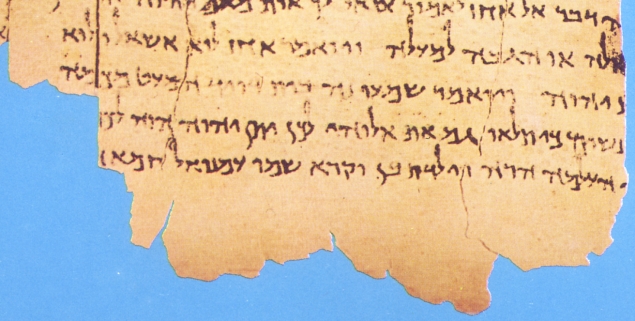 דבר אל אחז לאמור שאל לך אות מעם
או הגבה למעלה ויואמר אחז לוא אשאל ולוא
יהוה ויואמר שמעו נא בית דויד המעט מכמה
כי תלאו גם את אלוהי לכן יתן יהוה הוא
העלמה הרה וילדת בן וקרא שמו עמנואל חמאה